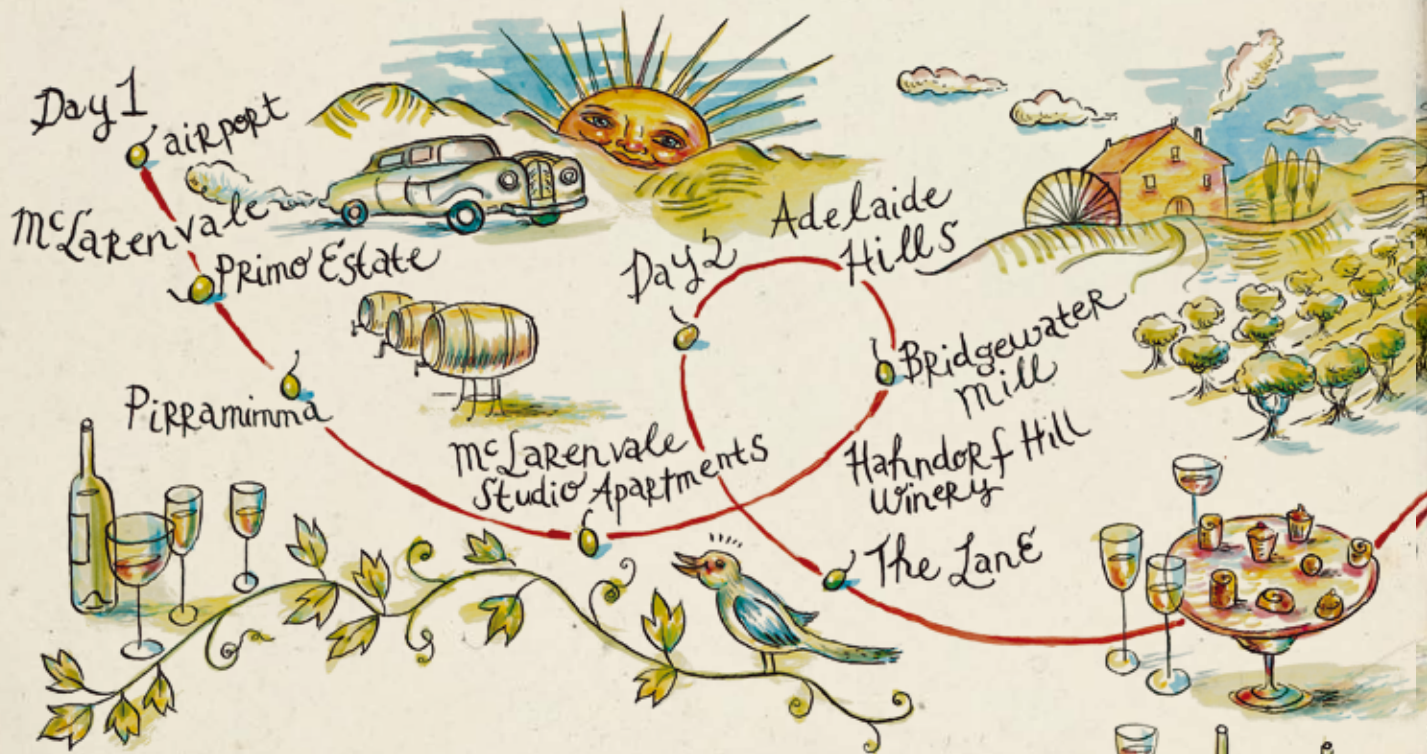 Day 1
airport
McLarenvale
Primo Estate
Pirramimma
McLarenvale
Studio Apartments
Day 2
Adelaide
Hills
Bridgewater
Mill
Hahndorf Hill
Winery
The Lane